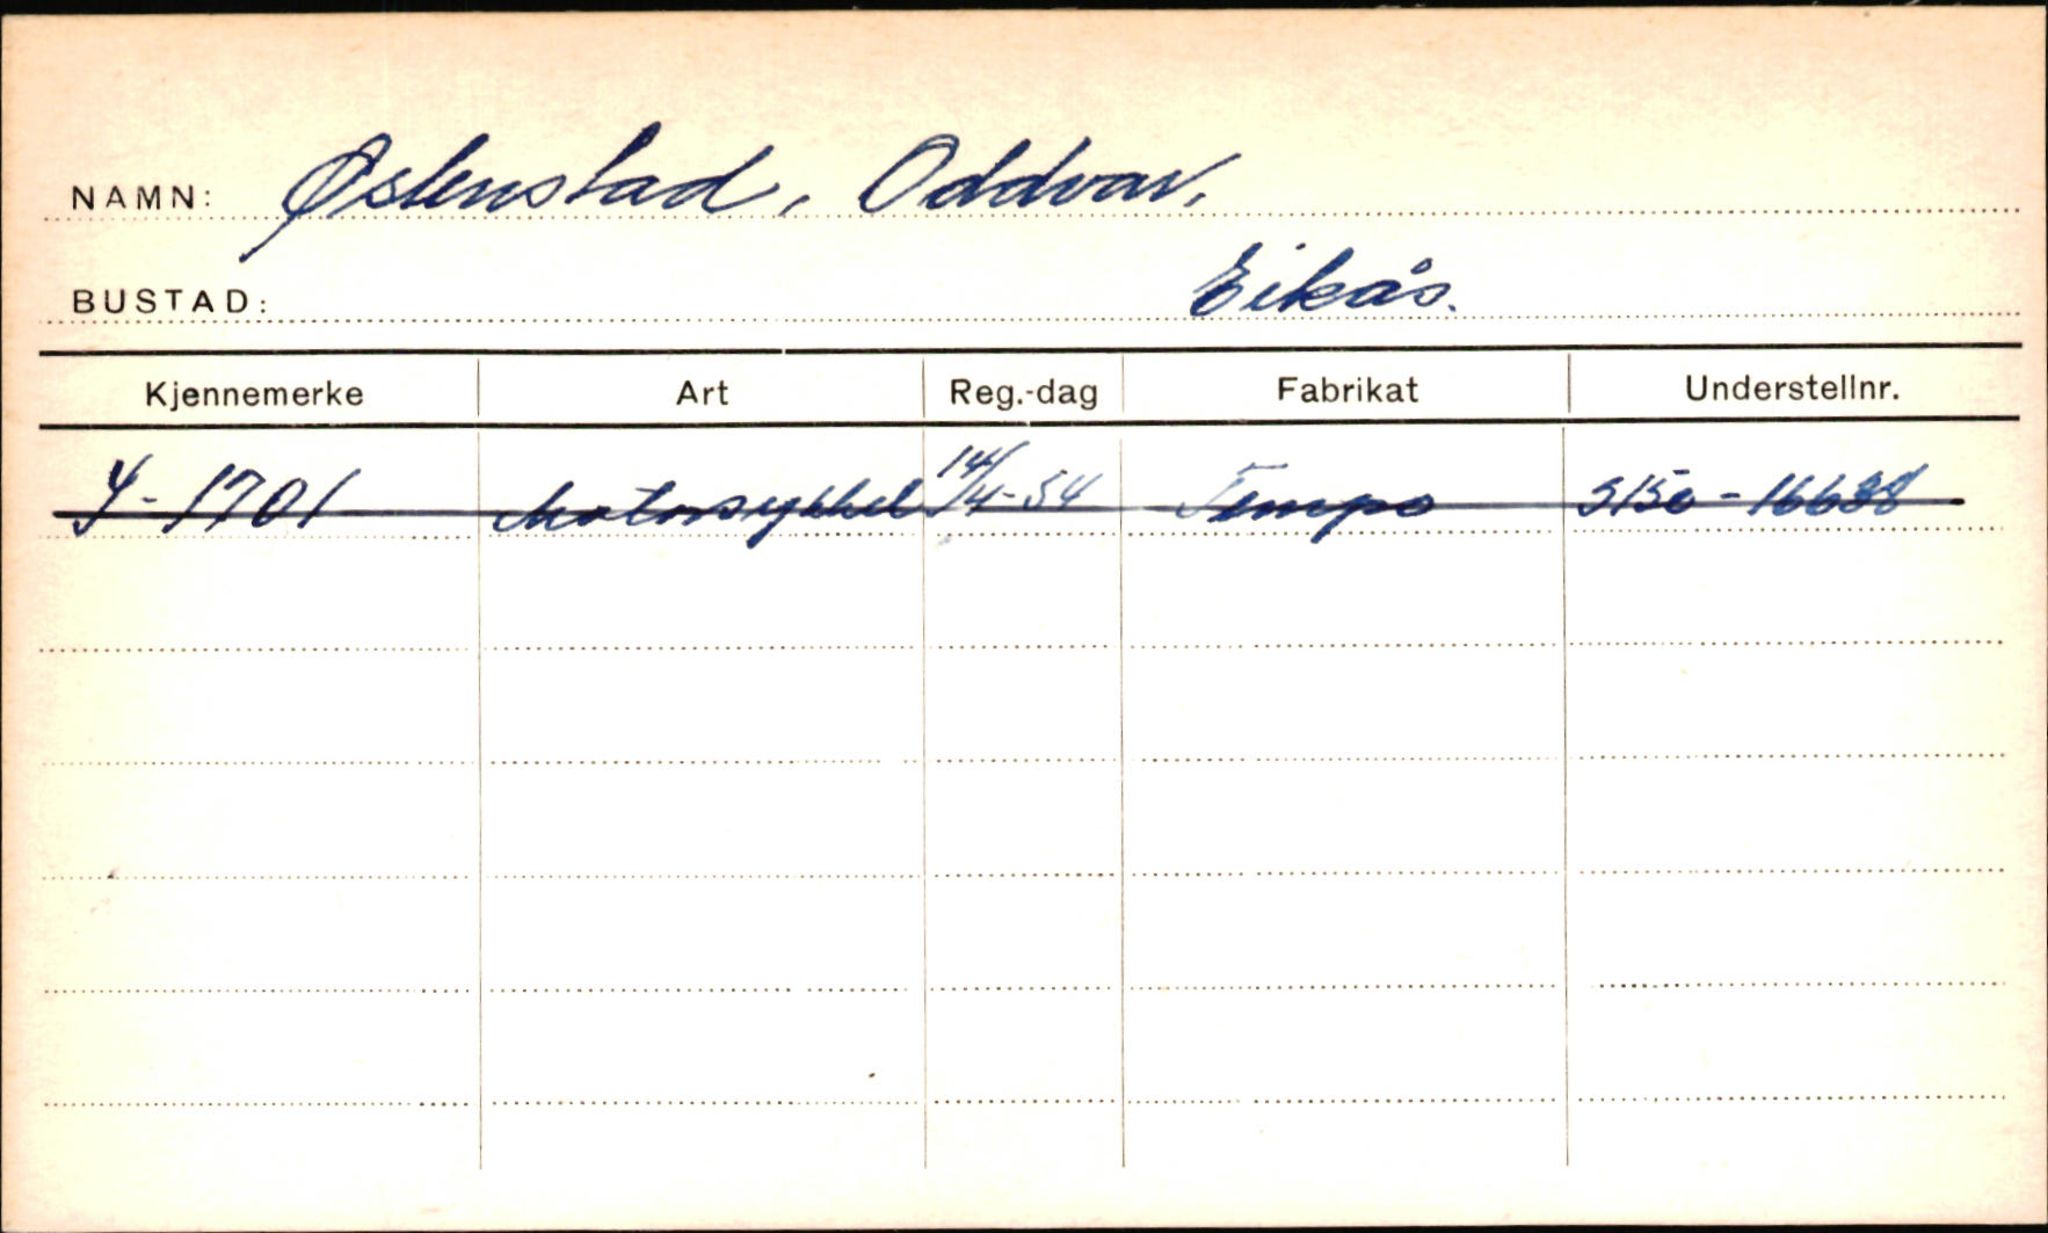 NAMN: Østenstad, Oddvar.
BUSTAD: Eikås.
Kjennemerke Art Reg.-dag Fabrikat Understellnr.
Y-1701 Motorsykkel 14/4-54 Tempo S150-16688